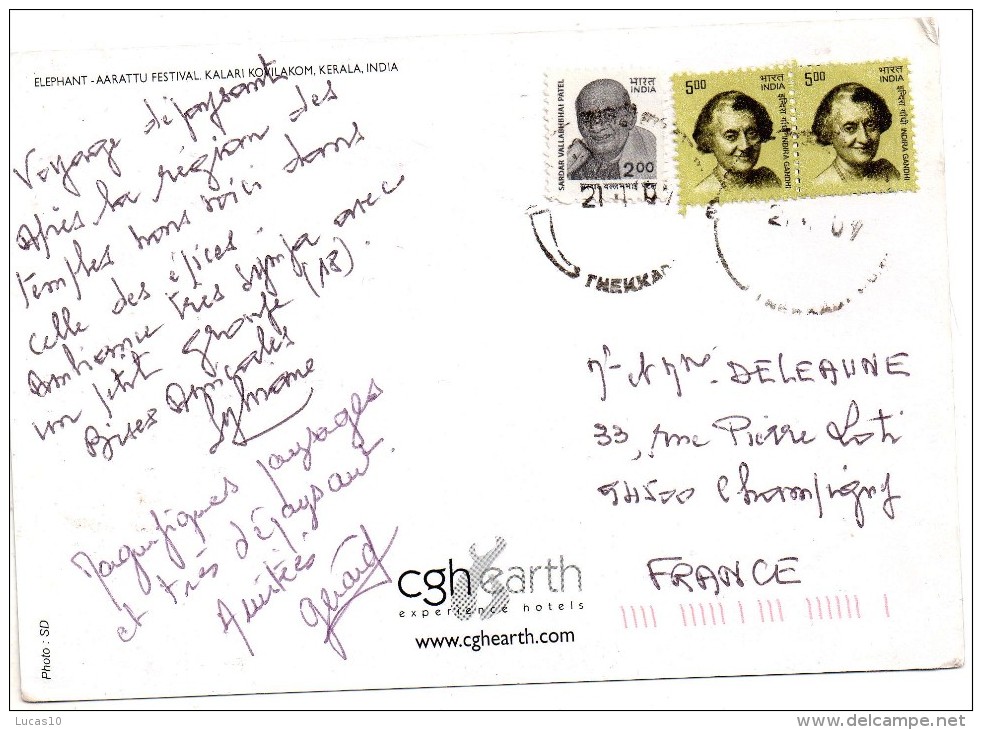 ELEPHANT - AARATTU FESTIVAL, KALARI KOVILAKOM, KERALA, INDIA
Voyage dépaysant
Après la région des
temples nous voici dans
celle des épices.
Ambiance très sympa avec
un petit groupe (18).
Bises Amicales
Sylviane
Magnifiques paysages
et très dépaysant.
Amitiés.
Gérard
Photo : SD
cgh earth
experience hotels
www.cghearth.com
SARDAR VALLABHBHAI PATEL
भारत
INDIA
2.00
सरदार वल्लभभाई पटेल
5.00
भारत
INDIA
इन्दिरा गांधी INDIRA GANDHI
5.00
भारत
INDIA
इन्दिरा गांधी INDIRA GANDHI
THEKKAD
Mr et Mme DELEAUNE
33, rue Pierre Loti
94500 Champigny
FRANCE
Lucas10
www.delcampe.net